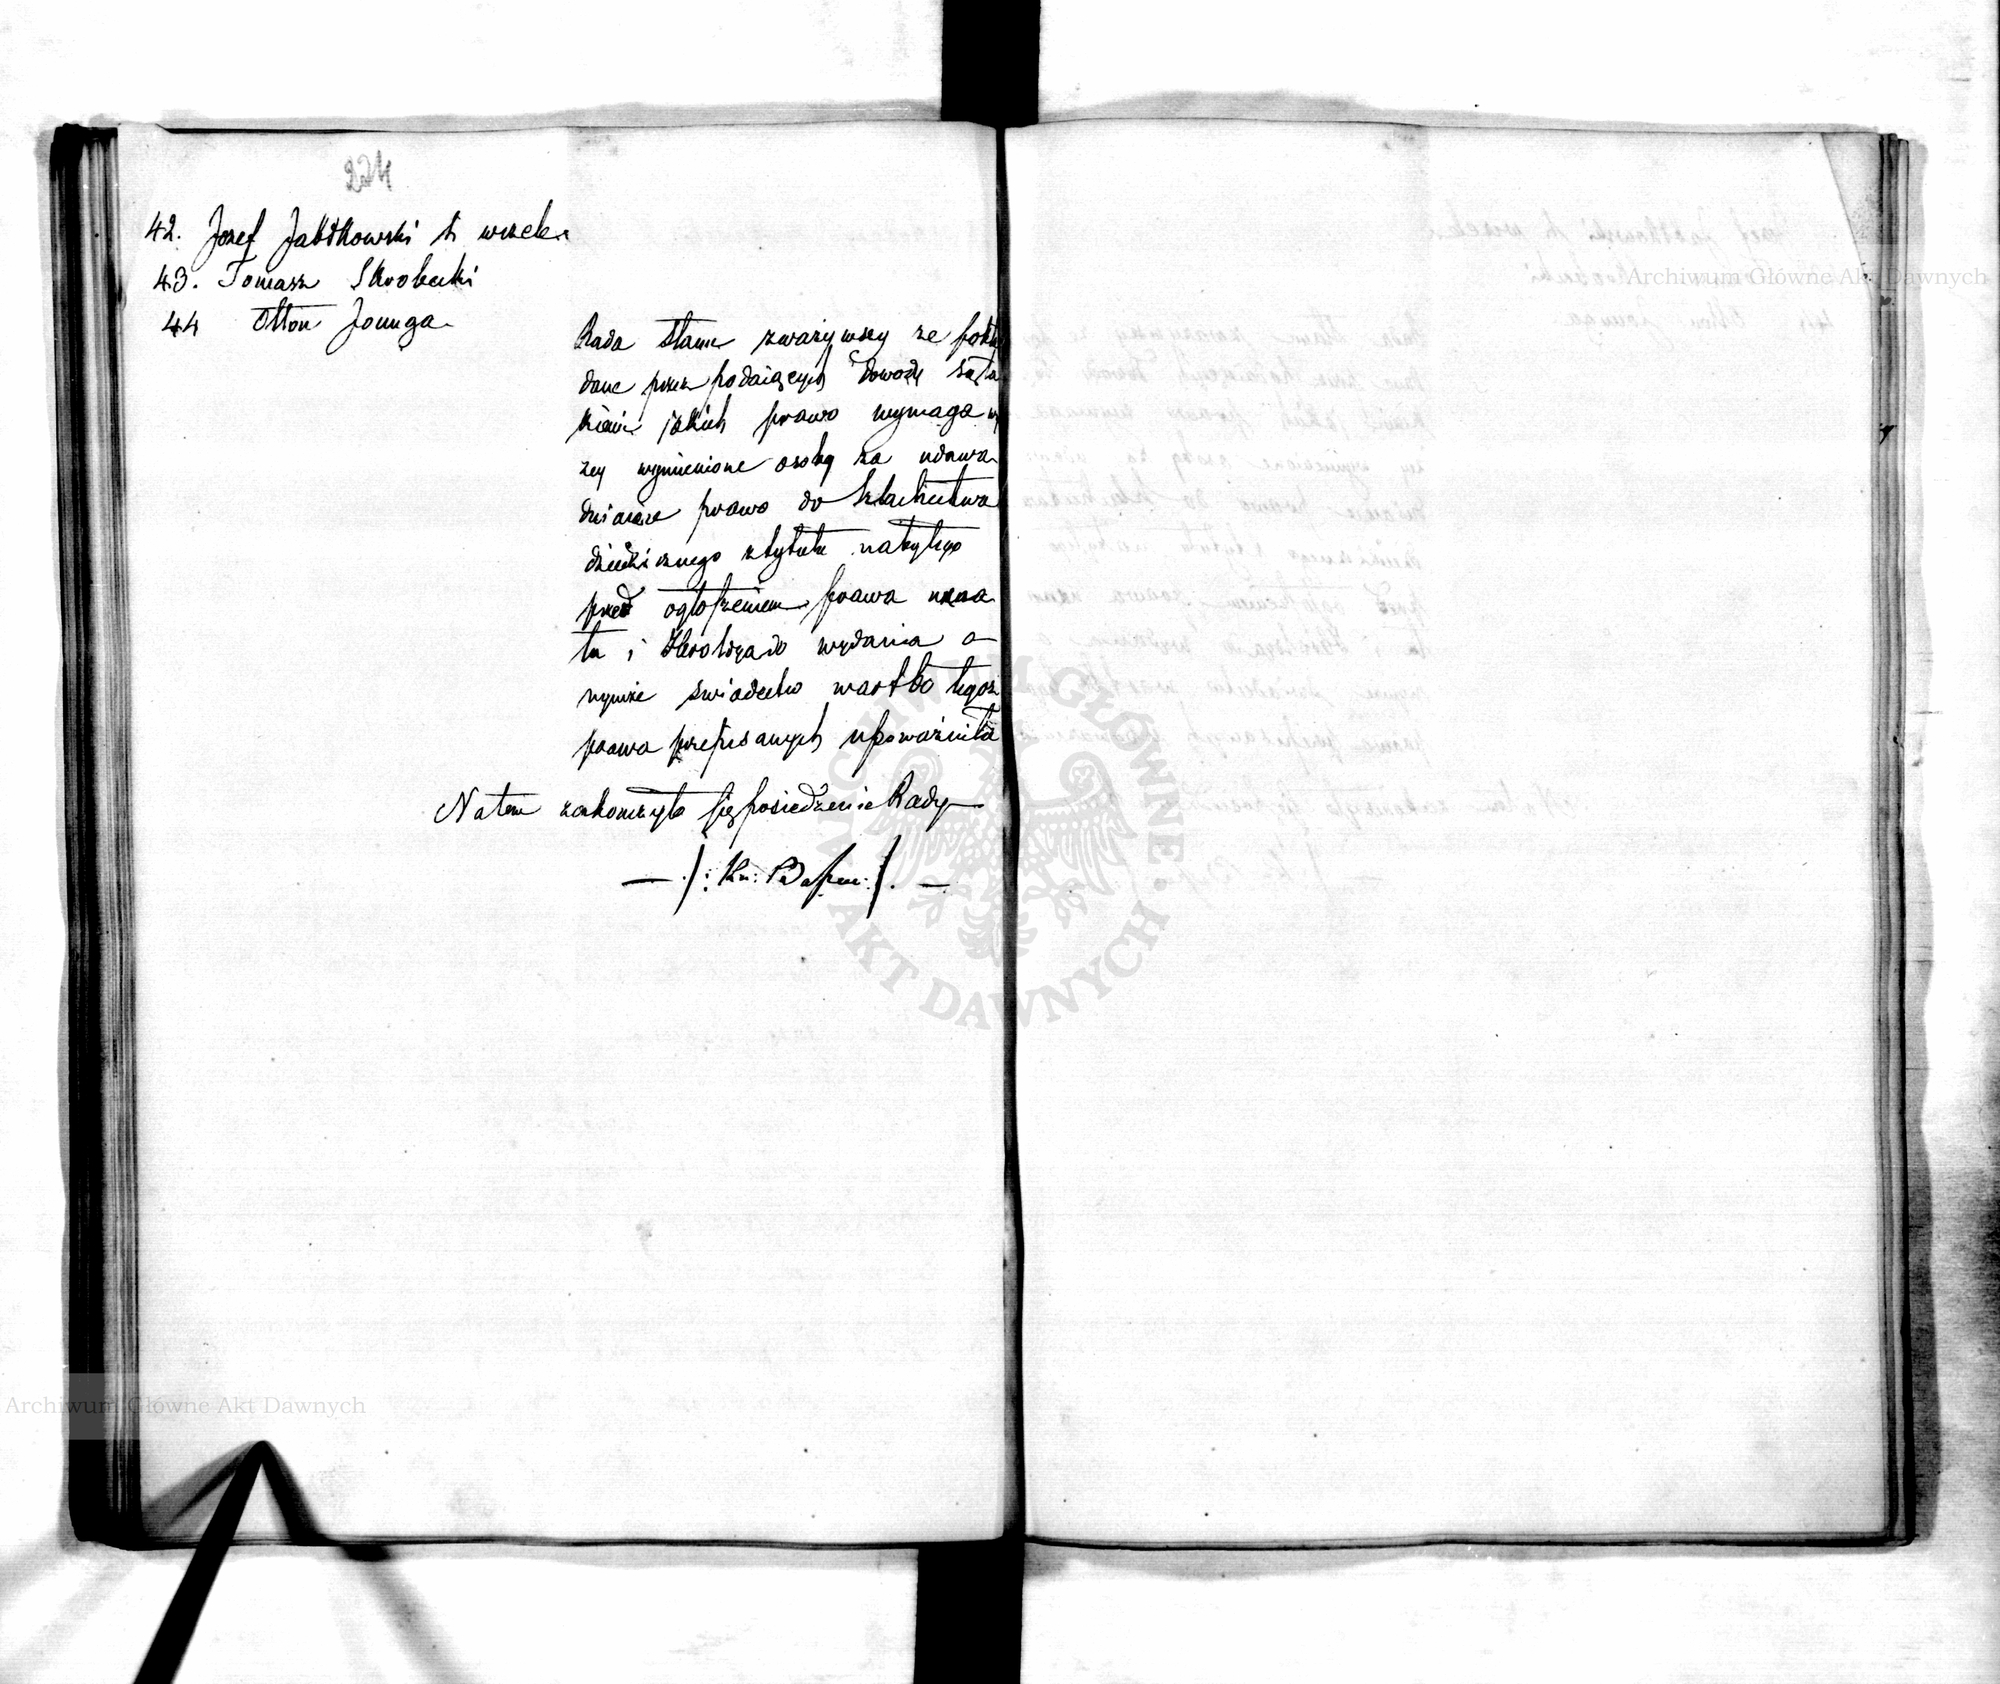 224
42. Jozef Jabłkowski h wszel.
43. Tomasz Skrobecki
44 Otton Jounga
Rada Stanu zważywszy ze pokła
dane przez podaiących dowody są ta
kiemi jakich prawo wymaga wy
zey wymienione osoby za udawa
dniaiące prawo do Szlachectwa
dziedzicznego z tytułu nabytego
przed ogłoszeniem prawa uzna
ła i Heroldyą do wydania o
nymże świadectw tegoż
prawa przepisanych upoważniła
Na tem zakonczyło się posiedzenie Rady
Archiwum Główne Akt Dawnych
ARCHIWUM GŁÓWNE AKT DAWNYCH
Archiwum Główne Akt Dawnych